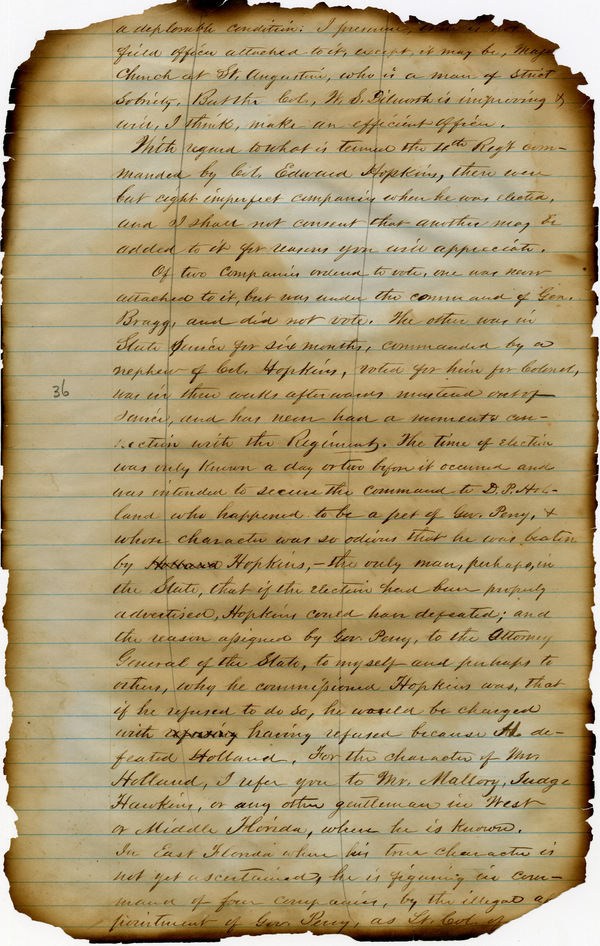 a deplorable condition. I presume, there is not
field officer attached to it, except, it may be, Major
Church at St. Augustine, who is a man of strict
sobriety. But the Col., W. S. Dilworth is improving &
will, I think, make an efficient officer.
With regard to what is termed the 4th Regt com-
manded by Col. Edward Hopkins, there were
but eight imperfect companies when he was elected,
and I shall not consent that another may be
added to it for reasons you will appreciate.
Of two Companies ordered to vote, one was never
attached to it, but was under the command of Gen.
Bragg, and did not vote. The other was in
State Service for six months, commanded by a
nephew of Col. Hopkins, voted for him for Colonel,
36
was in three weeks afterwards mustered out of
service, and has never had a moment's con-
nection with the Regiment. The time of election
was only known a day or two before it occurred and
was intended to secure the command to D. P. Hol-
land who happened to be a pet of Gov. Perry, &
whose character was so odious that he was beaten
by Holland Hopkins, - the only man, perhaps, in
the State, that if the election had been properly
advertised, Hopkins could have defeated; and
the reason assigned by Gov. Perry, to the Attorney
General of the State, to myself and perhaps to
others, why he commissioned Hopkins was, that
if he refused to do so, he would be charged
with refusing having refused because H. de-
feated Holland. For the character of Mr.
Holland, I refer you to Mr. Mallory, Judge
Hawkins, or any other gentleman in West
or Middle Florida, where he is known.
In East Florida where his true character is
not yet ascertained, he is figuring in com-
mand of four companies, by the illegal ap
pointment of Gov. Perry, as Lt. Col. of